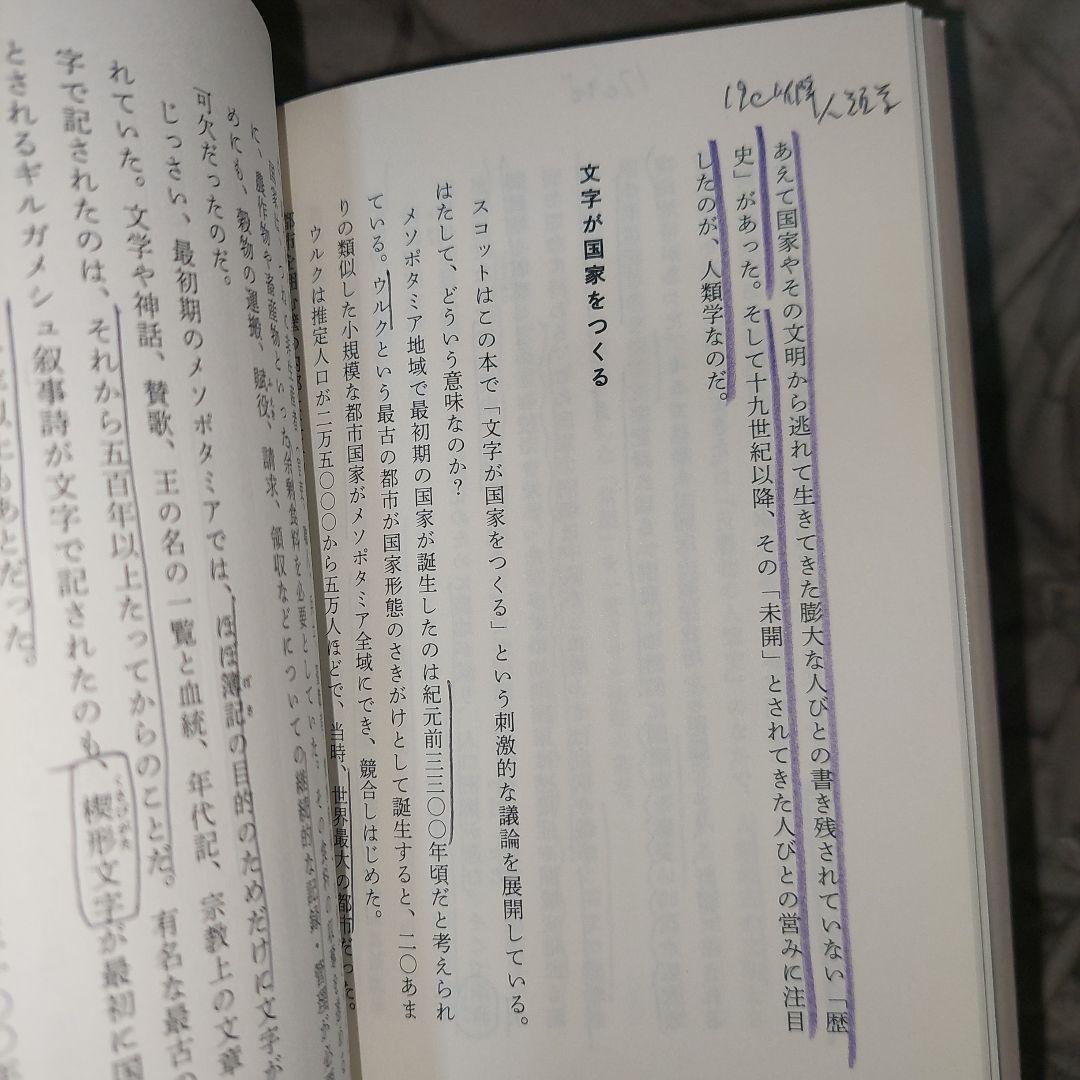 人類学
あえて国家やその文明から逃れて生きてきた膨大な人びとの書き残されていない「歴
史」があった。そして十九世紀以降、その「未開」とされてきた人びとの営みに注目
したのが、人類学なのだ。
文字が国家をつくる
スコットはこの本で「文字が国家をつくる」という刺激的な議論を展開している。
はたして、どういう意味なのか？
メソポタミア地域で最初期の国家が誕生したのは紀元前三三〇〇年頃だと考えられ
ている。ウルクという最古の都市が国家形態のさきがけとして誕生すると、二〇あま
りの類似した小規模な都市国家がメソポタミア全域にでき、競合しはじめた。
ウルクは推定人口が二万五〇〇〇から五万人ほどで、当時、世界最大の都市だった。
に、農作物や畜産物といった余剰食料を必要としていた。
めにも、穀物の運搬、賦役、請求、領収などについての継続的な記録・管理が
可欠だったのだ。
じっさい、最初期のメソポタミアでは、ほぼ簿記の目的のためだけに文字が
れていた。文学や神話、賛歌、王の名の一覧と血統、年代記、宗教上の文章
字で記されたのは、それから五百年以上たってからのことだ。有名な最古の
とされるギルガメシュ叙事詩が文字で記されたのも、楔形文字が最初に国
以上もあとだった。